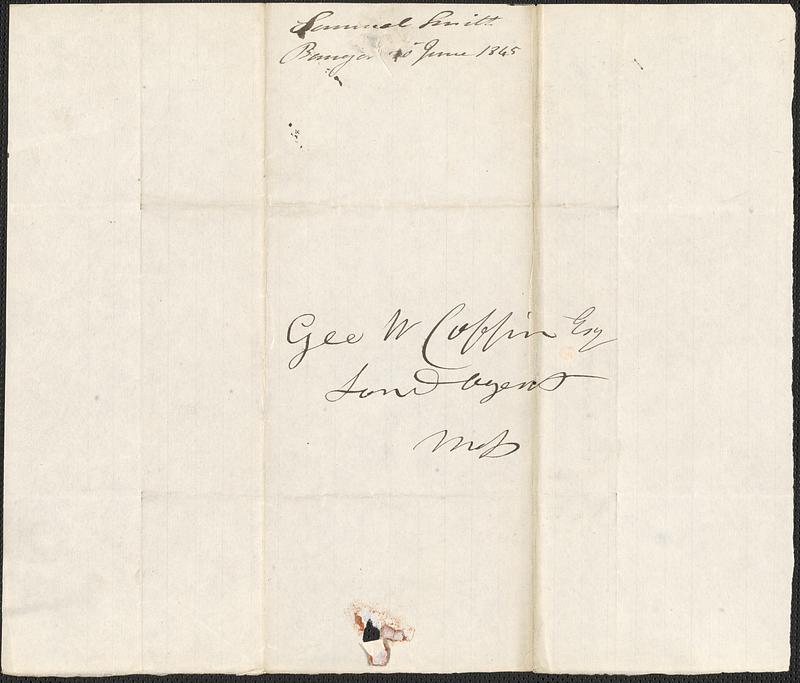 Samuel Smith
Bangor June 1845
Geo W Coffin Esq
Land Agent
Mass